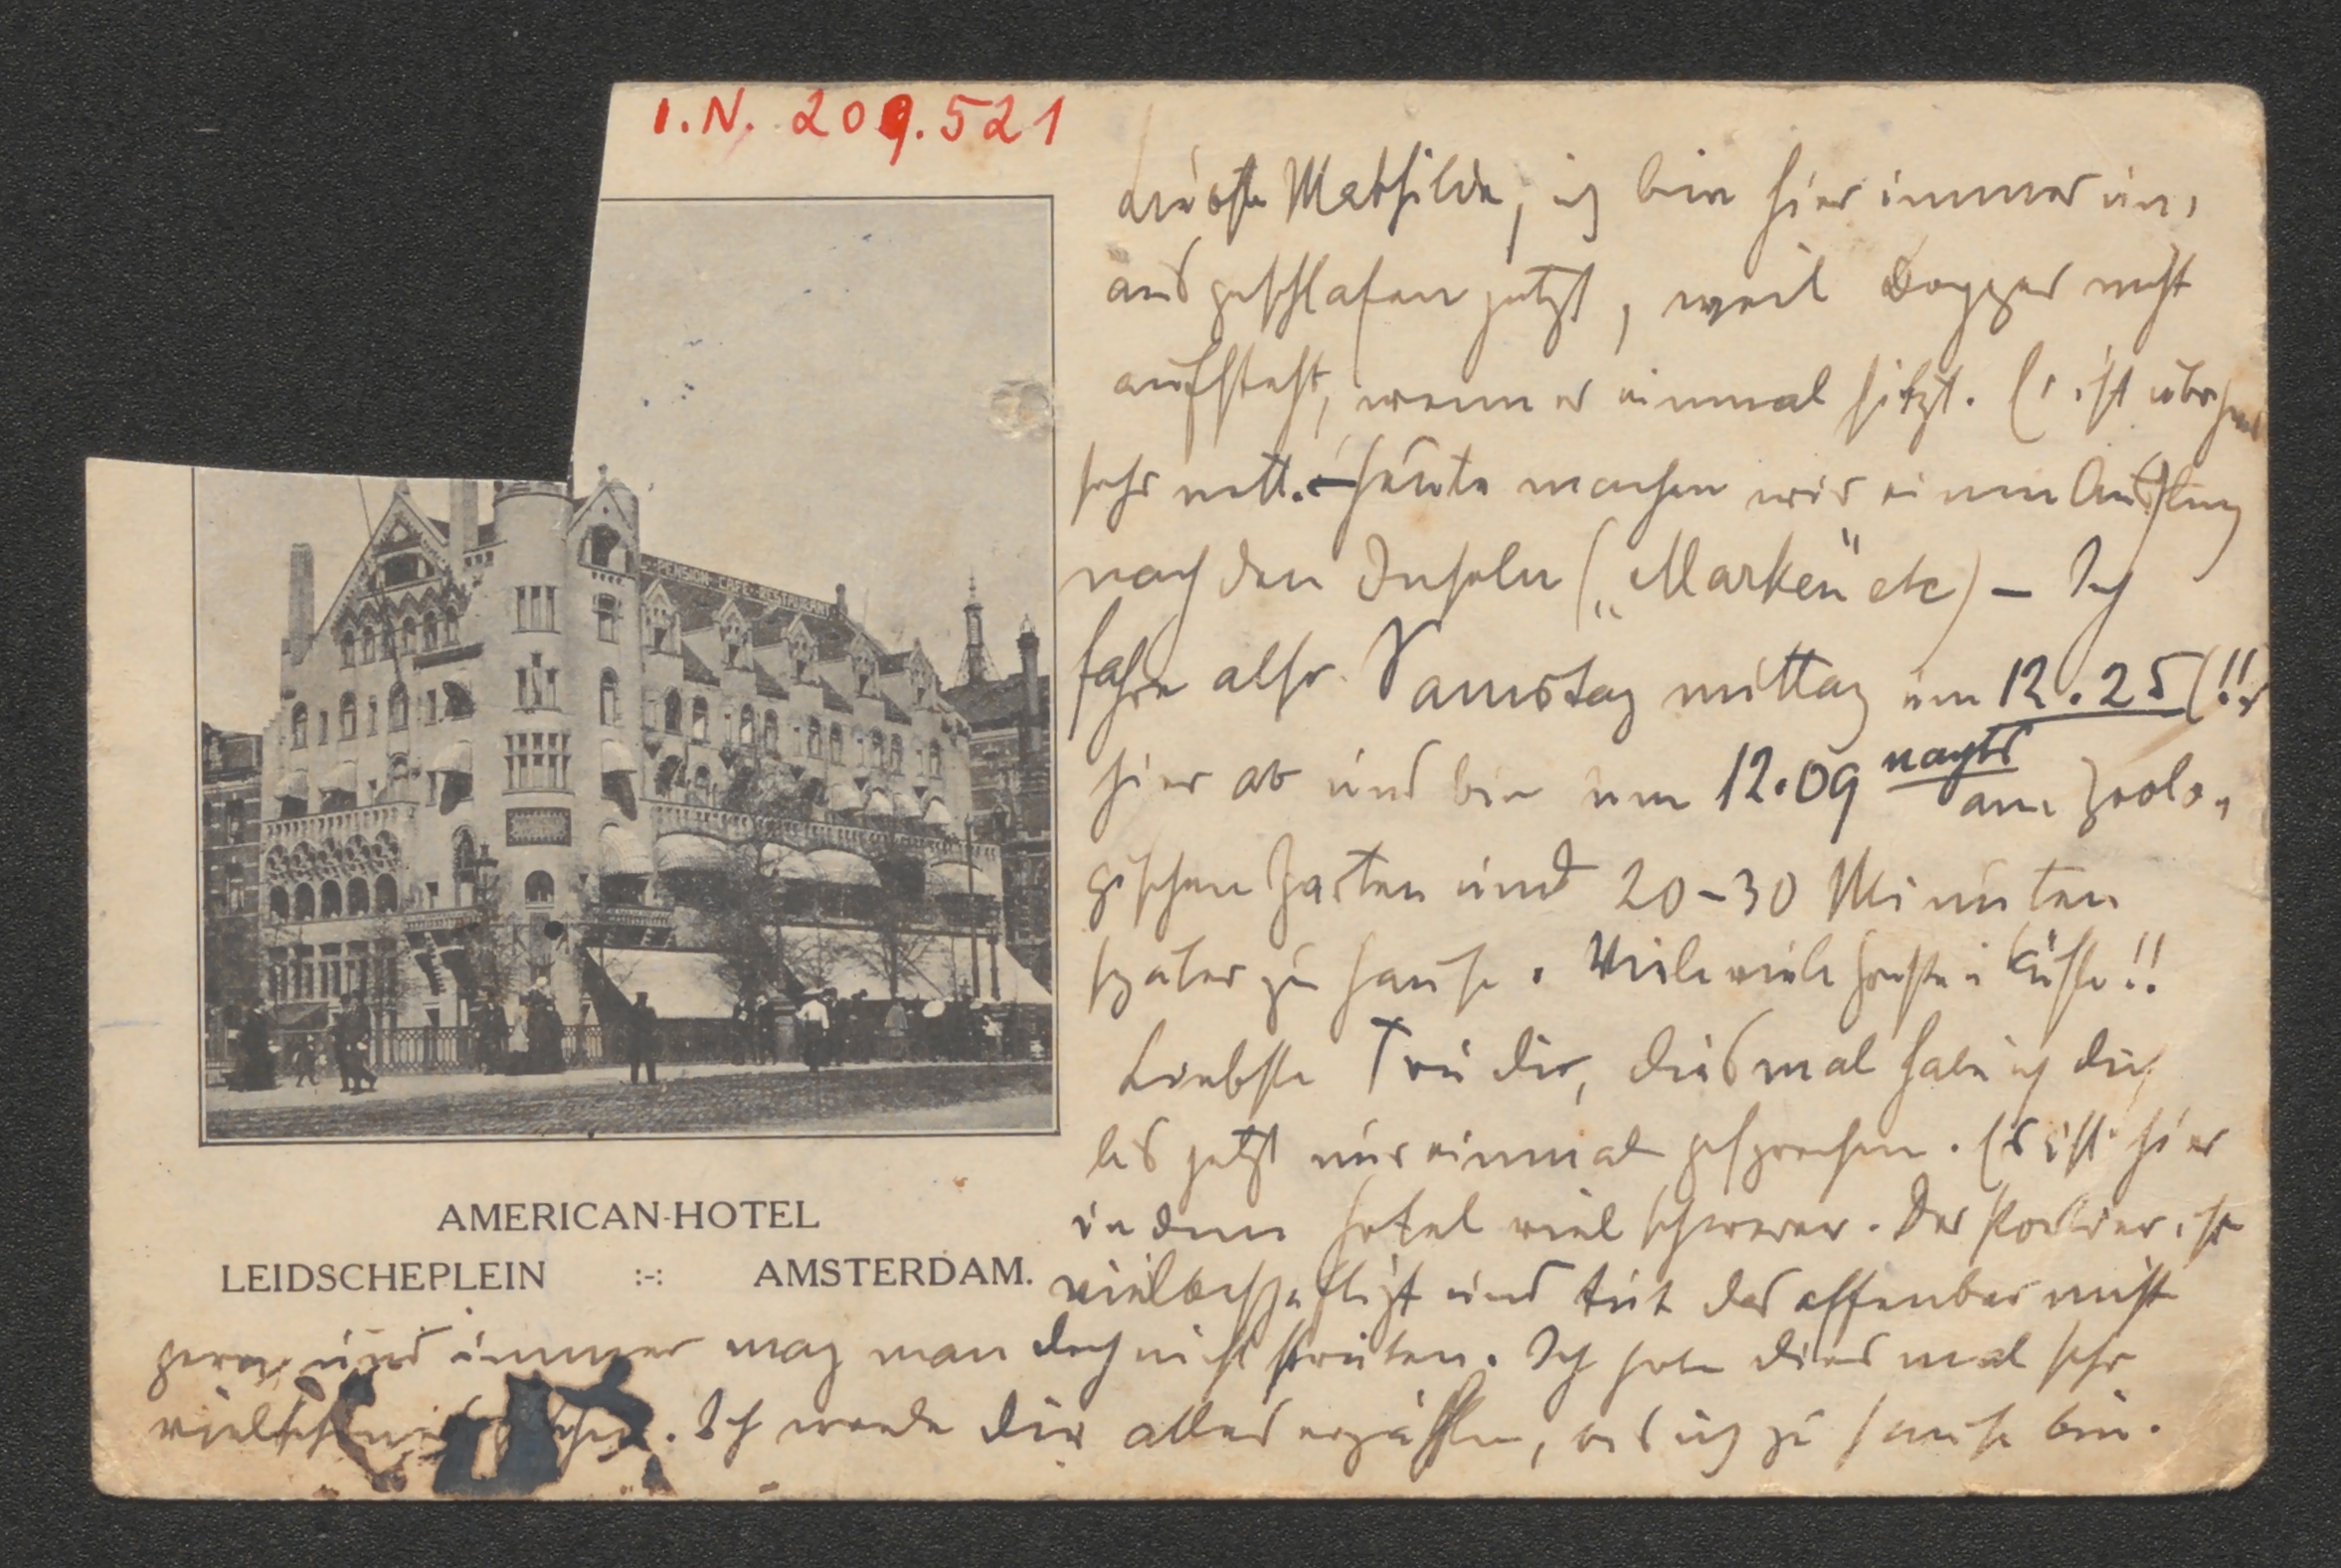 I.N. 209.521
PENSION CAFE-RESTAURANT
Liebste Mathilde, ich bin hier immer un-
ausgeschlafen jetzt, weil nicht
aufsteht, wenn er einmal sitzt. Er ist übrigens
sehr nett. – Heute machen wir einen Ausflug
nach den Inseln („Marken“ etc) – Ich
fahre also Samstag mittag um 12.25 (!!)
hier ab und bin um 12.09 nachts am Zoolo-
gischen Garten und 20–30 Minuten
später zu Hause. Viele viele Küsse!!
Liebste Trudi, diesmal hab ich dich
bis jetzt nur einmal gesprochen. Es ist hier
in dem Hotel viel schwerer. Der Portier ist
vielbeschäftigt und tut das offenbar nicht
gern und immer mag man doch nicht streiten. Ich habe diesmal sehr
viel. Ich werde dir alles erzählen, bis ich zu Hause bin.
AMERICAN-HOTEL
LEIDSCHEPLEIN :-: AMSTERDAM.